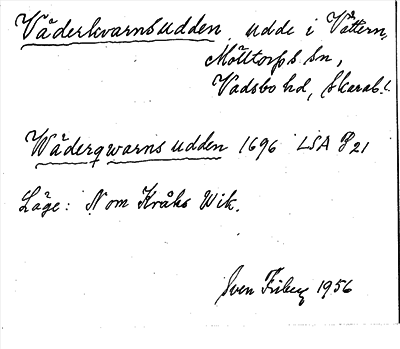 Väderkvarnsudden, udde i Vättern,
Mölltorps sn,
Vadsbo hd, Skarab. l.
Wäderqwarns udden 1696 LSA P21
Läge: N om Kråks Wik.
Sven Friberg 1956